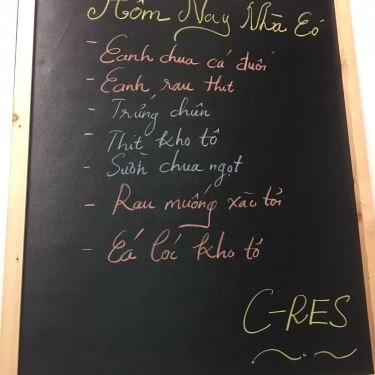 Hôm Nay Nhà Có
- Canh chua cá đuối
- Canh rau thịt
- Trứng chiên
- Thịt kho tộ
- Sườn chua ngọt
- Rau muống xào tỏi
- Cá lóc kho tộ
C-RES